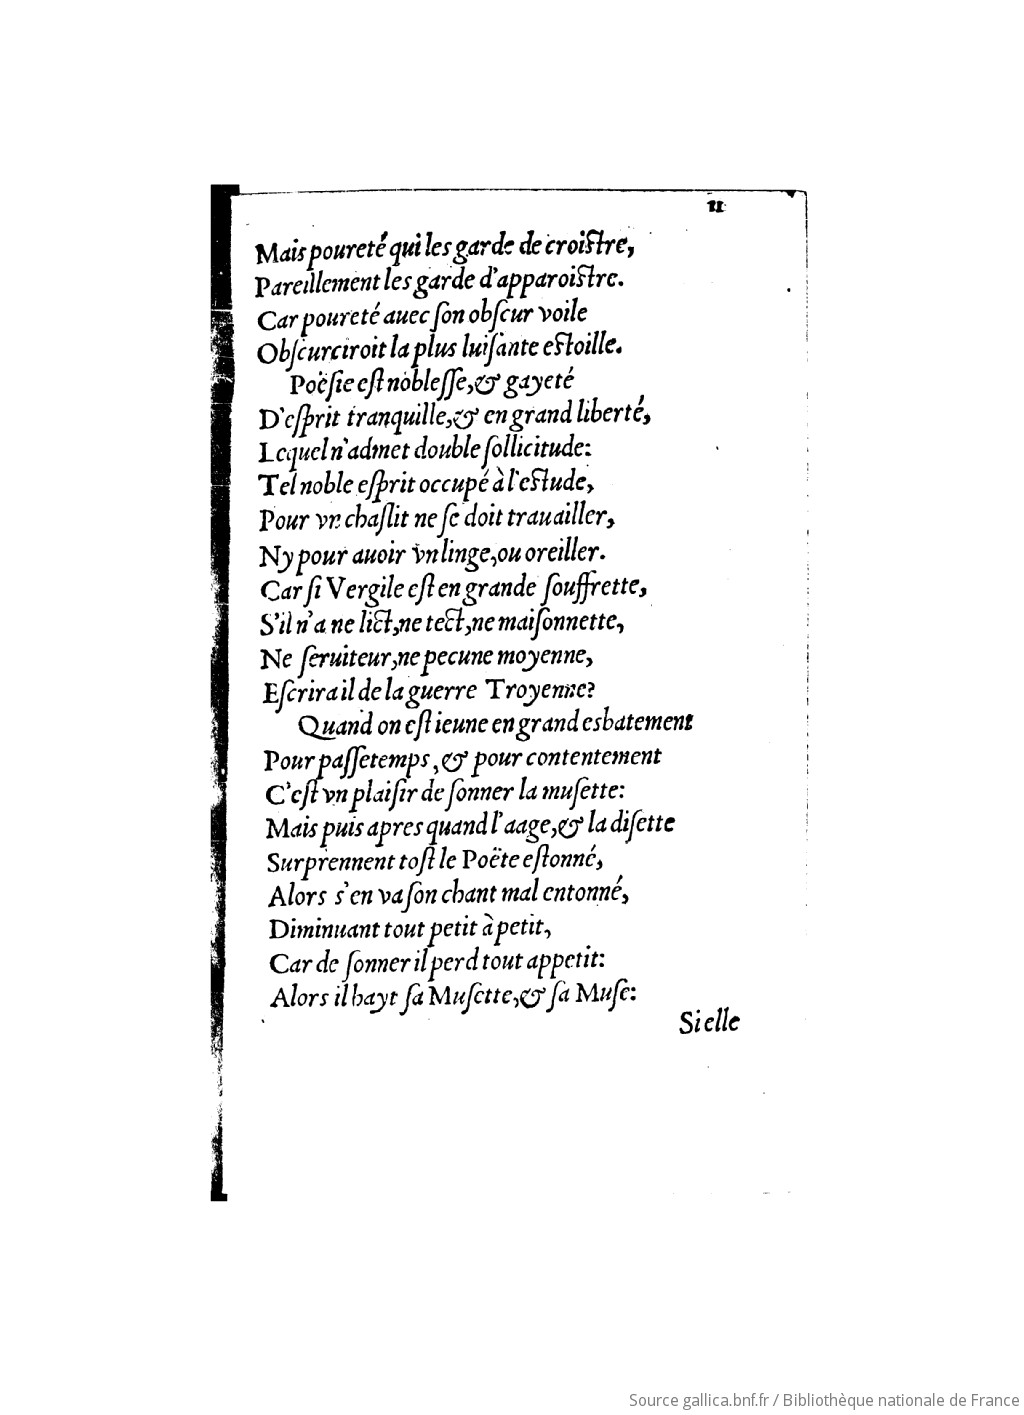 11
Mais poureté qui les garde de croiſtre,
Pareillement les garde d'apparoiſtre.
Car poureté auec ſon obſcur voile
Obſcurciroit la plus luiſante eſtoille.
Poëſie eſt nobleſſe, & gayeté
D'eſprit tranquille, & en grand liberté,
Lequel n'admet double ſollicitude:
Tel noble eſprit occupé à l'eſtude,
Pour vn chaſlit ne ſe doit trauailler,
Ny pour auoir vn linge, ou oreiller.
Car ſi Vergile eſt en grande ſouffrette,
S'il n'a ne lict, ne tect, ne maiſonnette,
Ne ſeruiteur, ne pecune moyenne,
Eſcrira il de la guerre Troyenne?
Quand on eſt ieune en grand esbatement
Pour paſſetemps, & pour contentement
C'eſt vn plaiſir de ſonner la muſette:
Mais puis apres quand l'aage, & la diſette
Surprennent toſt le Poëte eſtonné,
Alors s'en va ſon chant mal entonné,
Diminuant tout petit à petit,
Car de ſonner il perd tout appetit:
Alors il hayt ſa Muſette, & ſa Muſe:
Si elle
Source gallica.bnf.fr / Bibliothèque nationale de France